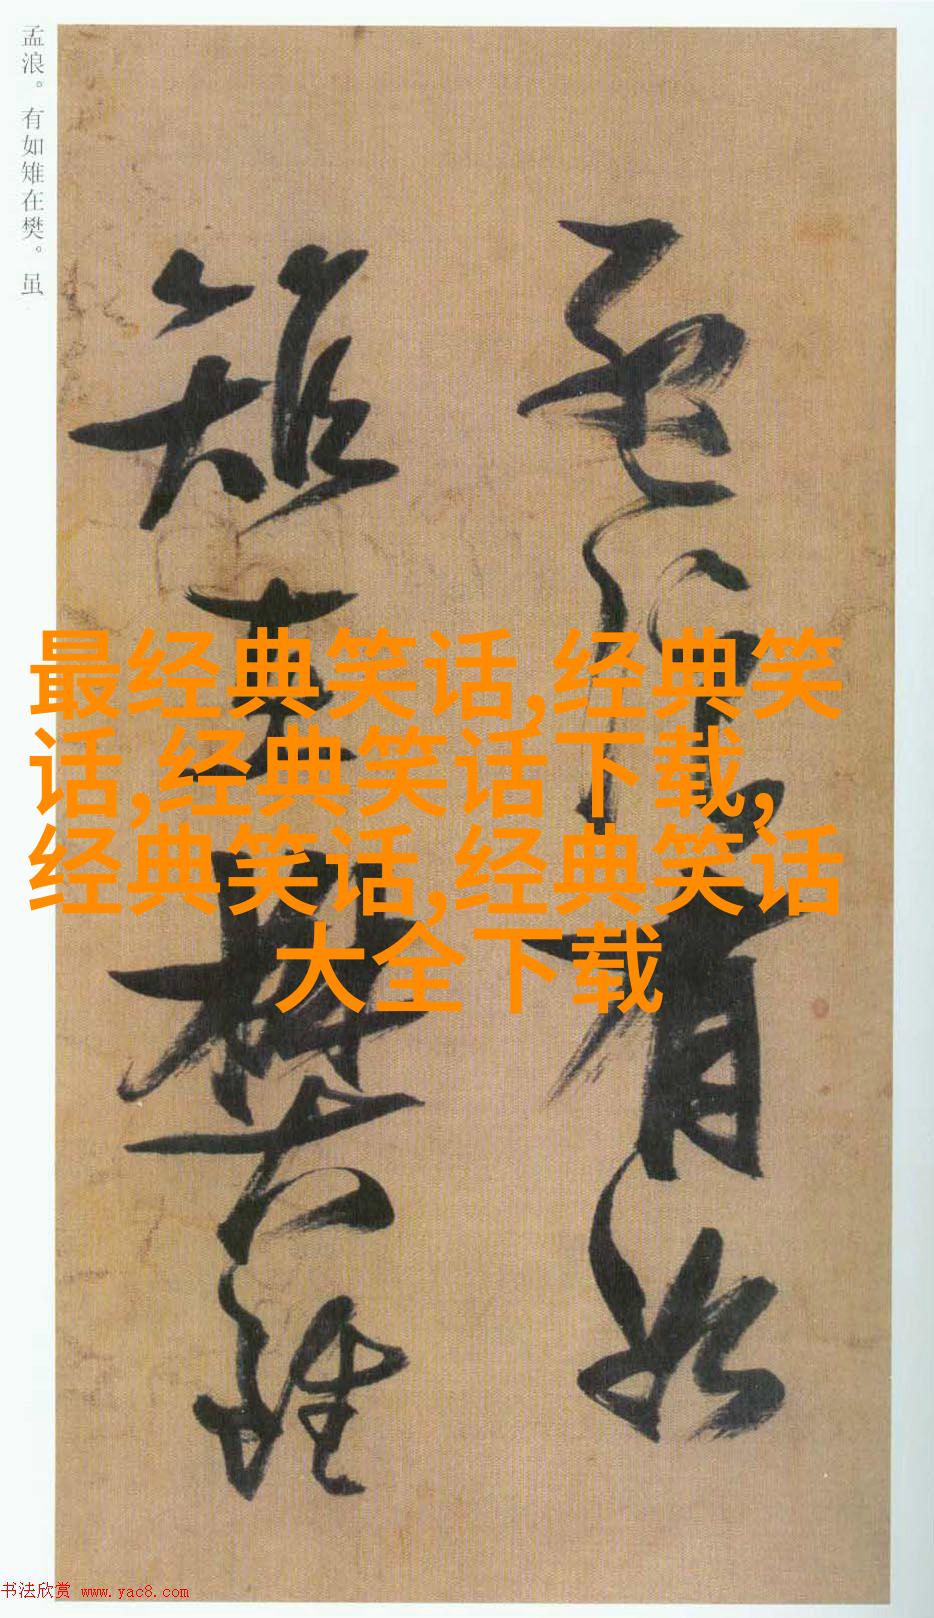 孟浪。有如雉在樊。虽
孟浪有如
雉在樊虽
最经典笑话,经典笑
话,经典笑话下载,
经典笑话,经典笑话
大全下载
书法欣赏 www.yac8.com